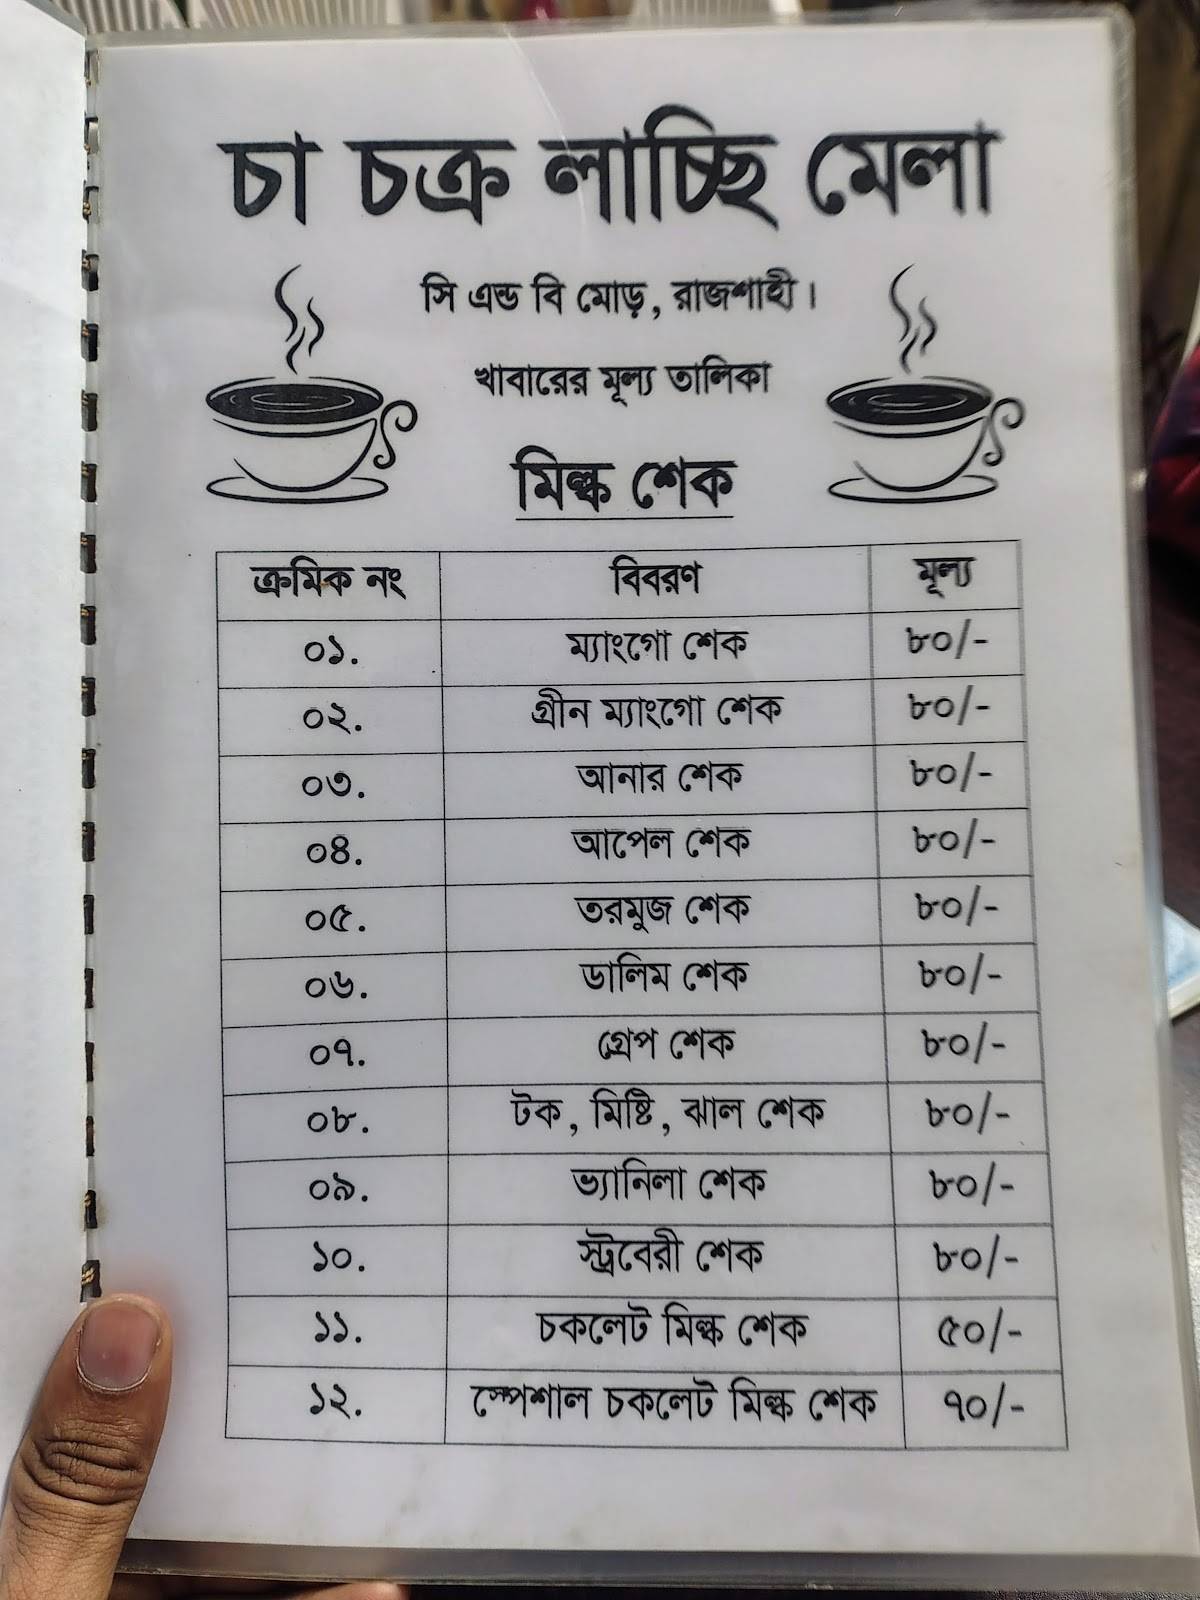 চা চক্র লাচ্ছি মেলা
সি এন্ড বি মোড়, রাজশাহী।
খাবারের মূল্য তালিকা
মিল্ক শেক
ক্রমিক নং বিবরণ মূল্য
০১. ম্যাংগো শেক ৮০/-
০২. গ্রীন ম্যাংগো শেক ৮০/-
০৩. আনার শেক ৮০/-
০৪. আপেল শেক ৮০/-
০৫. তরমুজ শেক ৮০/-
০৬. ডালিম শেক ৮০/-
০৭. গ্রেপ শেক ৮০/-
০৮. টক, মিষ্টি, ঝাল শেক ৮০/-
০৯. ভ্যানিলা শেক ৮০/-
১০. স্ট্রবেরী শেক ৮০/-
১১. চকলেট মিল্ক শেক ৫০/-
১২. স্পেশাল চকলেট মিল্ক শেক ৭০/-